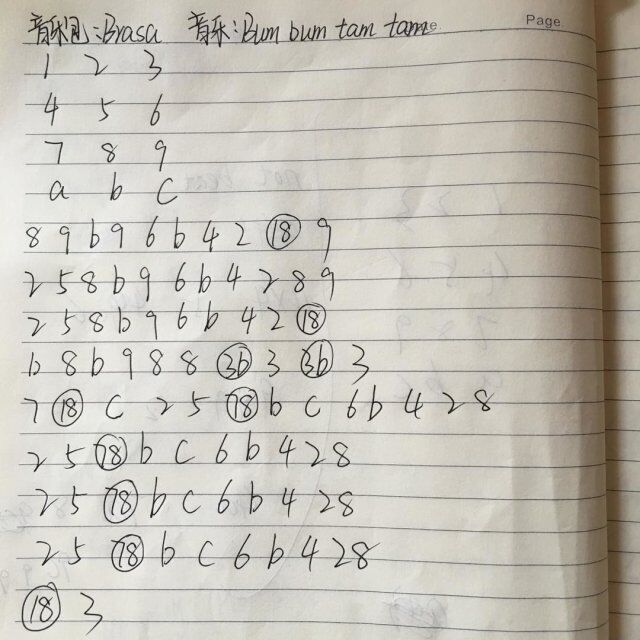 音乐团:Brasa 音乐:Bum bum tam tam Page.
1 2 3
4 5 6
7 8 9
a b c
8 9 b 9 6 b 4 2 18 9
2 5 8 b 9 6 b 4 2 8 9
2 5 8 b 9 6 b 4 2 18
b 8 b 9 8 8 3b 3 3b 3
7 18 c 2 5 78 b c 6 b 4 2 8
2 5 78 b c 6 b 4 2 8
2 5 78 b c 6 b 4 2 8
2 5 78 b c 6 b 4 2 8
18 3